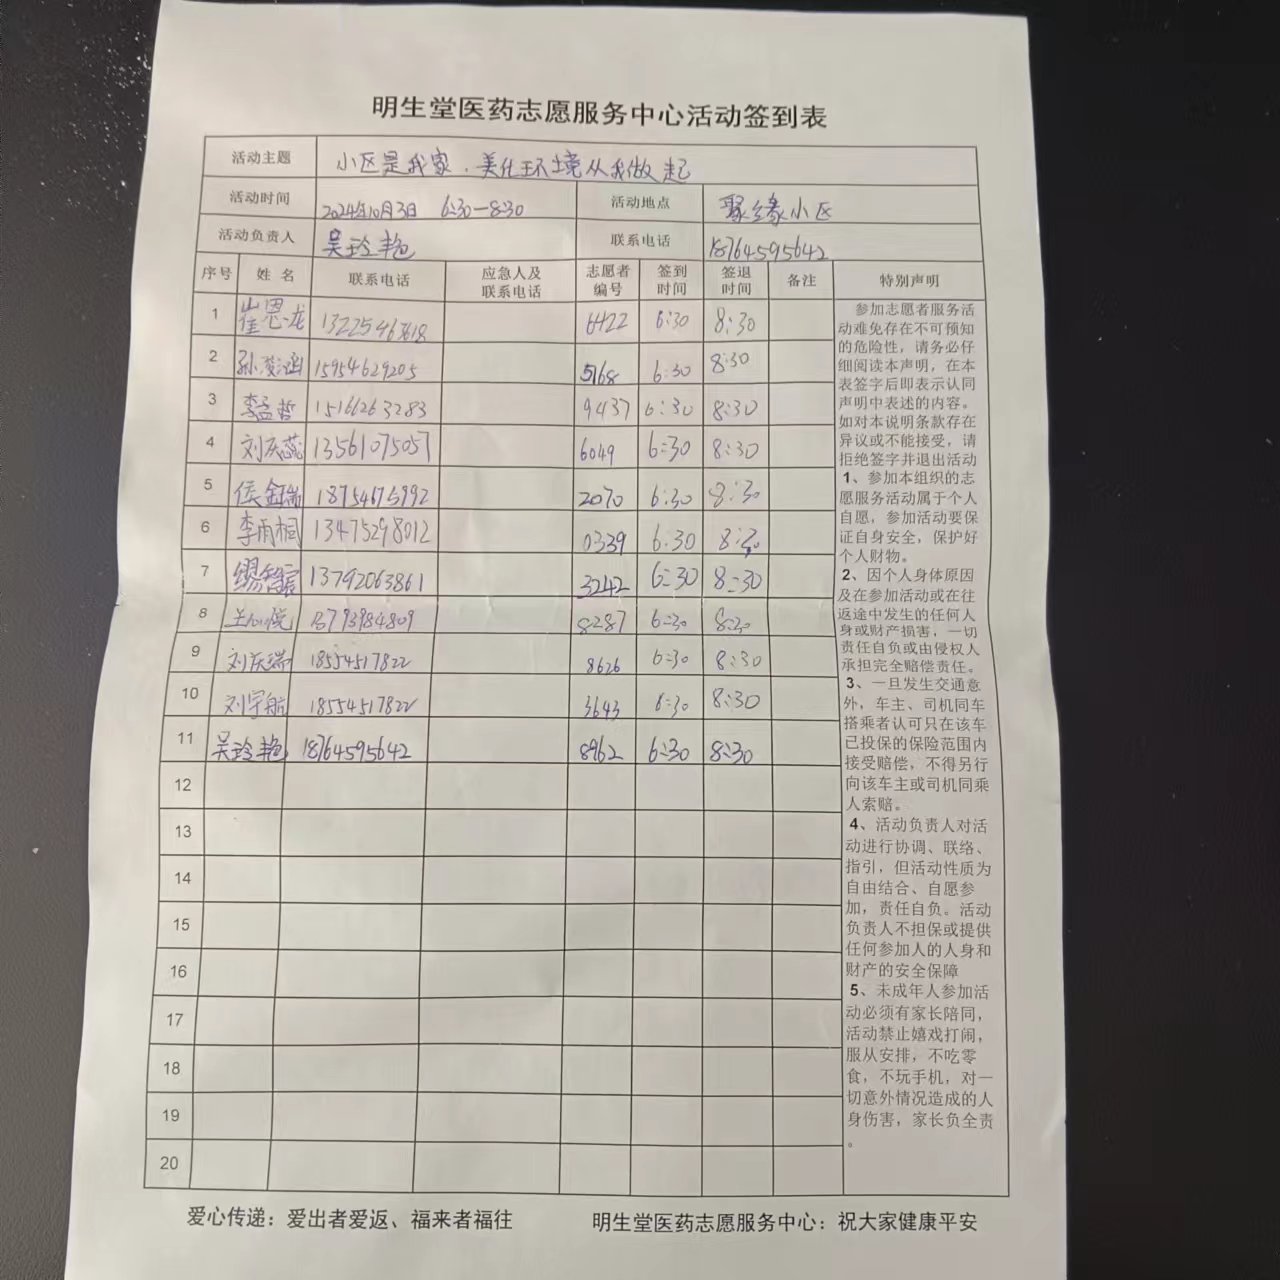 明生堂医药志愿服务中心活动签到表
活动主题 小区是我家.美化环境从我做起
活动时间 2024年10月3日 6:30—8:30 活动地点 聚缘小区
活动负责人 吴玲艳 联系电话 18764595642
序号 姓名 联系电话 应急人及联系电话 志愿者编号 签到时间 签退时间 备注 特别声明
1 崔恩龙 13225467618 6422 6:30 8:30
2 孙菱涵 15954629205 5168 6:30 8:30
3 李孟哲 15166263283 9437 6:30 8:30
4 刘庆蕊 13561075057 6049 6:30 8:30
5 侯金瑞 2070 6:30 8:30
6 李雨桐 13475298012 0339 6:30 8:30
7 13792063861 3242 6:30 8:30
8 王心悦 8287 6:30 8:30
9 刘庆瑞 18554517822 8626 6:30 8:30
10 刘宇航 18554517822 3643 6:30 8:30
11 吴玲艳 18764595642 8962 6:30 8:30
12
13
14
15
16
17
18
19
20
参加志愿者服务活
动难免存在不可预知
的危险性，请务必仔
细阅读本声明，在本
表签字后即表示认同
声明中表述的内容。
如对本说明条款存在
异议或不能接受，请
拒绝签字并退出活动
1、参加本组织的志
愿服务活动属于个人
自愿，参加活动要保
证自身安全，保护好
个人财物。
2、因个人身体原因
及在参加活动或在往
返途中发生的任何人
身或财产损害，一切
责任自负或由侵权人
承担完全赔偿责任。
3、一旦发生交通意
外，车主、司机同车
搭乘者认可只在该车
已投保的保险范围内
接受赔偿，不得另行
向该车主或司机同乘
人索赔。
4、活动负责人对活
动进行协调、联络、
指引，但活动性质为
自由结合、自愿参
加，责任自负。活动
负责人不担保或提供
任何参加人的人身和
财产的安全保障
5、未成年人参加活
动必须有家长陪同，
活动禁止嬉戏打闹，
服从安排，不吃零
食，不玩手机，对一
切意外情况造成的人
身伤害，家长负全责
。
爱心传递：爱出者爱返、福来者福往 明生堂医药志愿服务中心：祝大家健康平安